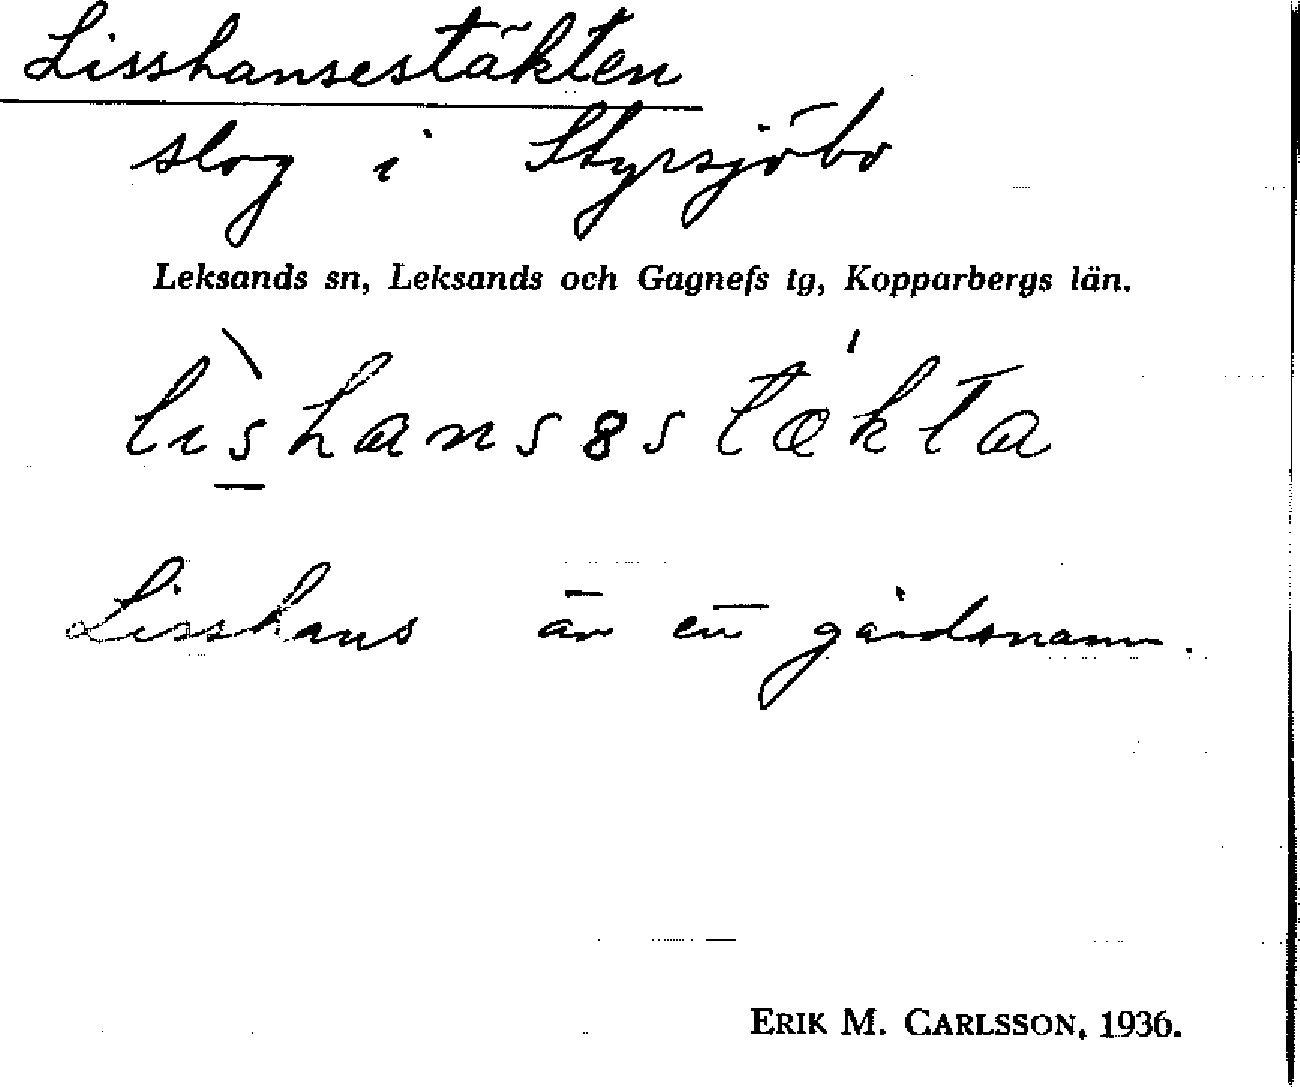 Lisshansestäkten
slog i Styrsjöbo
Leksands sn, Leksands och Gagnefs tg, Kopparbergs län.
lìs̲hansəstǽkta
Lisshans är ett gårdsnamn.
ERIK M. CARLSSON, 1936.